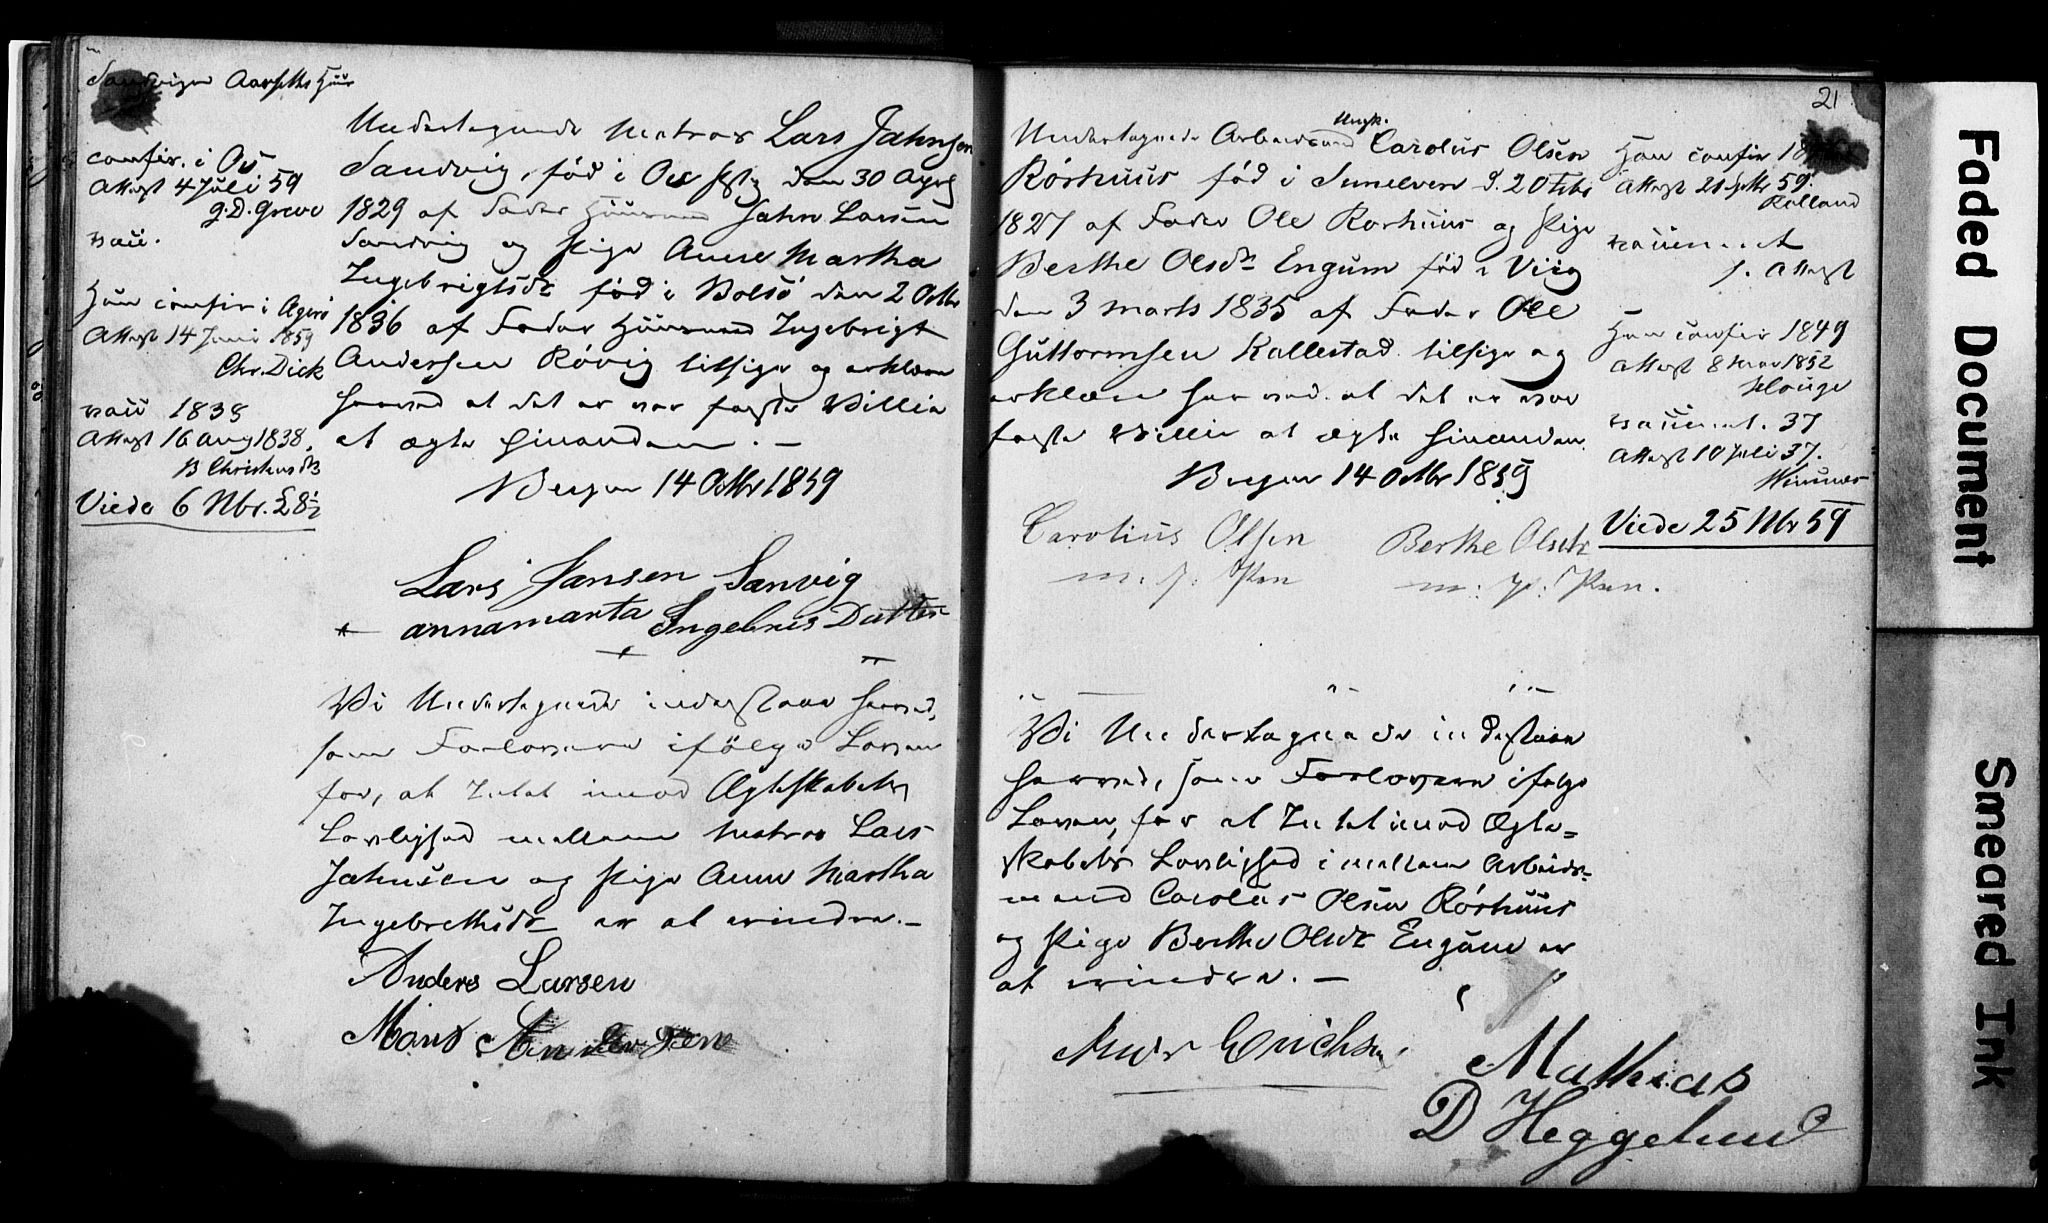 Sandvigen Aarseths Huus
confir. i Os
Attest 4 Juli 59
J.D. Greve
vacc.
Hun confir i Agerö
Attest 14 Juni 1859
Chr. Dick
vacc 1838
Attest 16 Aug 1838,
B Christens
Viede 6 Nbr. 28½
Undertegnede Matros Lars Jahnsen
Sandvig, fød i Os Pstg den 30 April
1829 af Fader Huusmand Jahn Larsen
Sandvig og Pige Anne Martha
Ingebrigtsdt fød i Bolsö den 2 Octbr
1836 af Fader Huusmand Ingebrigt
Andersen Rövig tilsige og erklære
herved at det er vor faste Villie
at ægte hinanden. —
Bergen 14 Octbr 1859
Lars Jansen Sanvig
annamarta Ingebris Datter
Vi Undertegnede indestaae herved,
som Forlovere ifölge Loven
for, at Intet imod Ægteskabets
Lovlighed mellem Matros Lars
Jahnsen og Pige Anne Martha
Ingebrethsdt er at erindre. —
Anders Larsen
Mons Andersen
21
Undertegnede Arbeidsmand Ungk. Carolus Olsen
Rörhuus fød i Sunelven d. 20 Febr
1827 af Fader Ole Rorhuus og Pige
Berthe Olsdt Engum fød i Viig
den 3 Marts 1835 af Fader Ole
Guttormsen Kallestad tilsige og
erklære herved at det er vor
faste Villie at ægte hinanden
Bergen 14 Octbr 1859
Carolius Olsen Berthe Olsdtr
m. p. Pen m: p: Pen.
Han confir 18
Attest 21 Septbr 59.
Rolland
vaccineret
s. Attest
Hun confir 1849
Attest 8 Mar 1852
Houge
vaccinert. 37
Attest 10 Juli 37.
Viede 25 Nbr 59
Vi Undertagnede indestaae
herved, som Forlovere ifølge
Loven, for at Intet imod Ægte=
skabets Lovlighed imellem Arbeids=
mand Carolus Olsen Rörhuus
og Pige Berthe Olsdt Engum er
at erindre. —
Erichsen
Mathias
D Heggelund
Faded Document
Smeared Ink